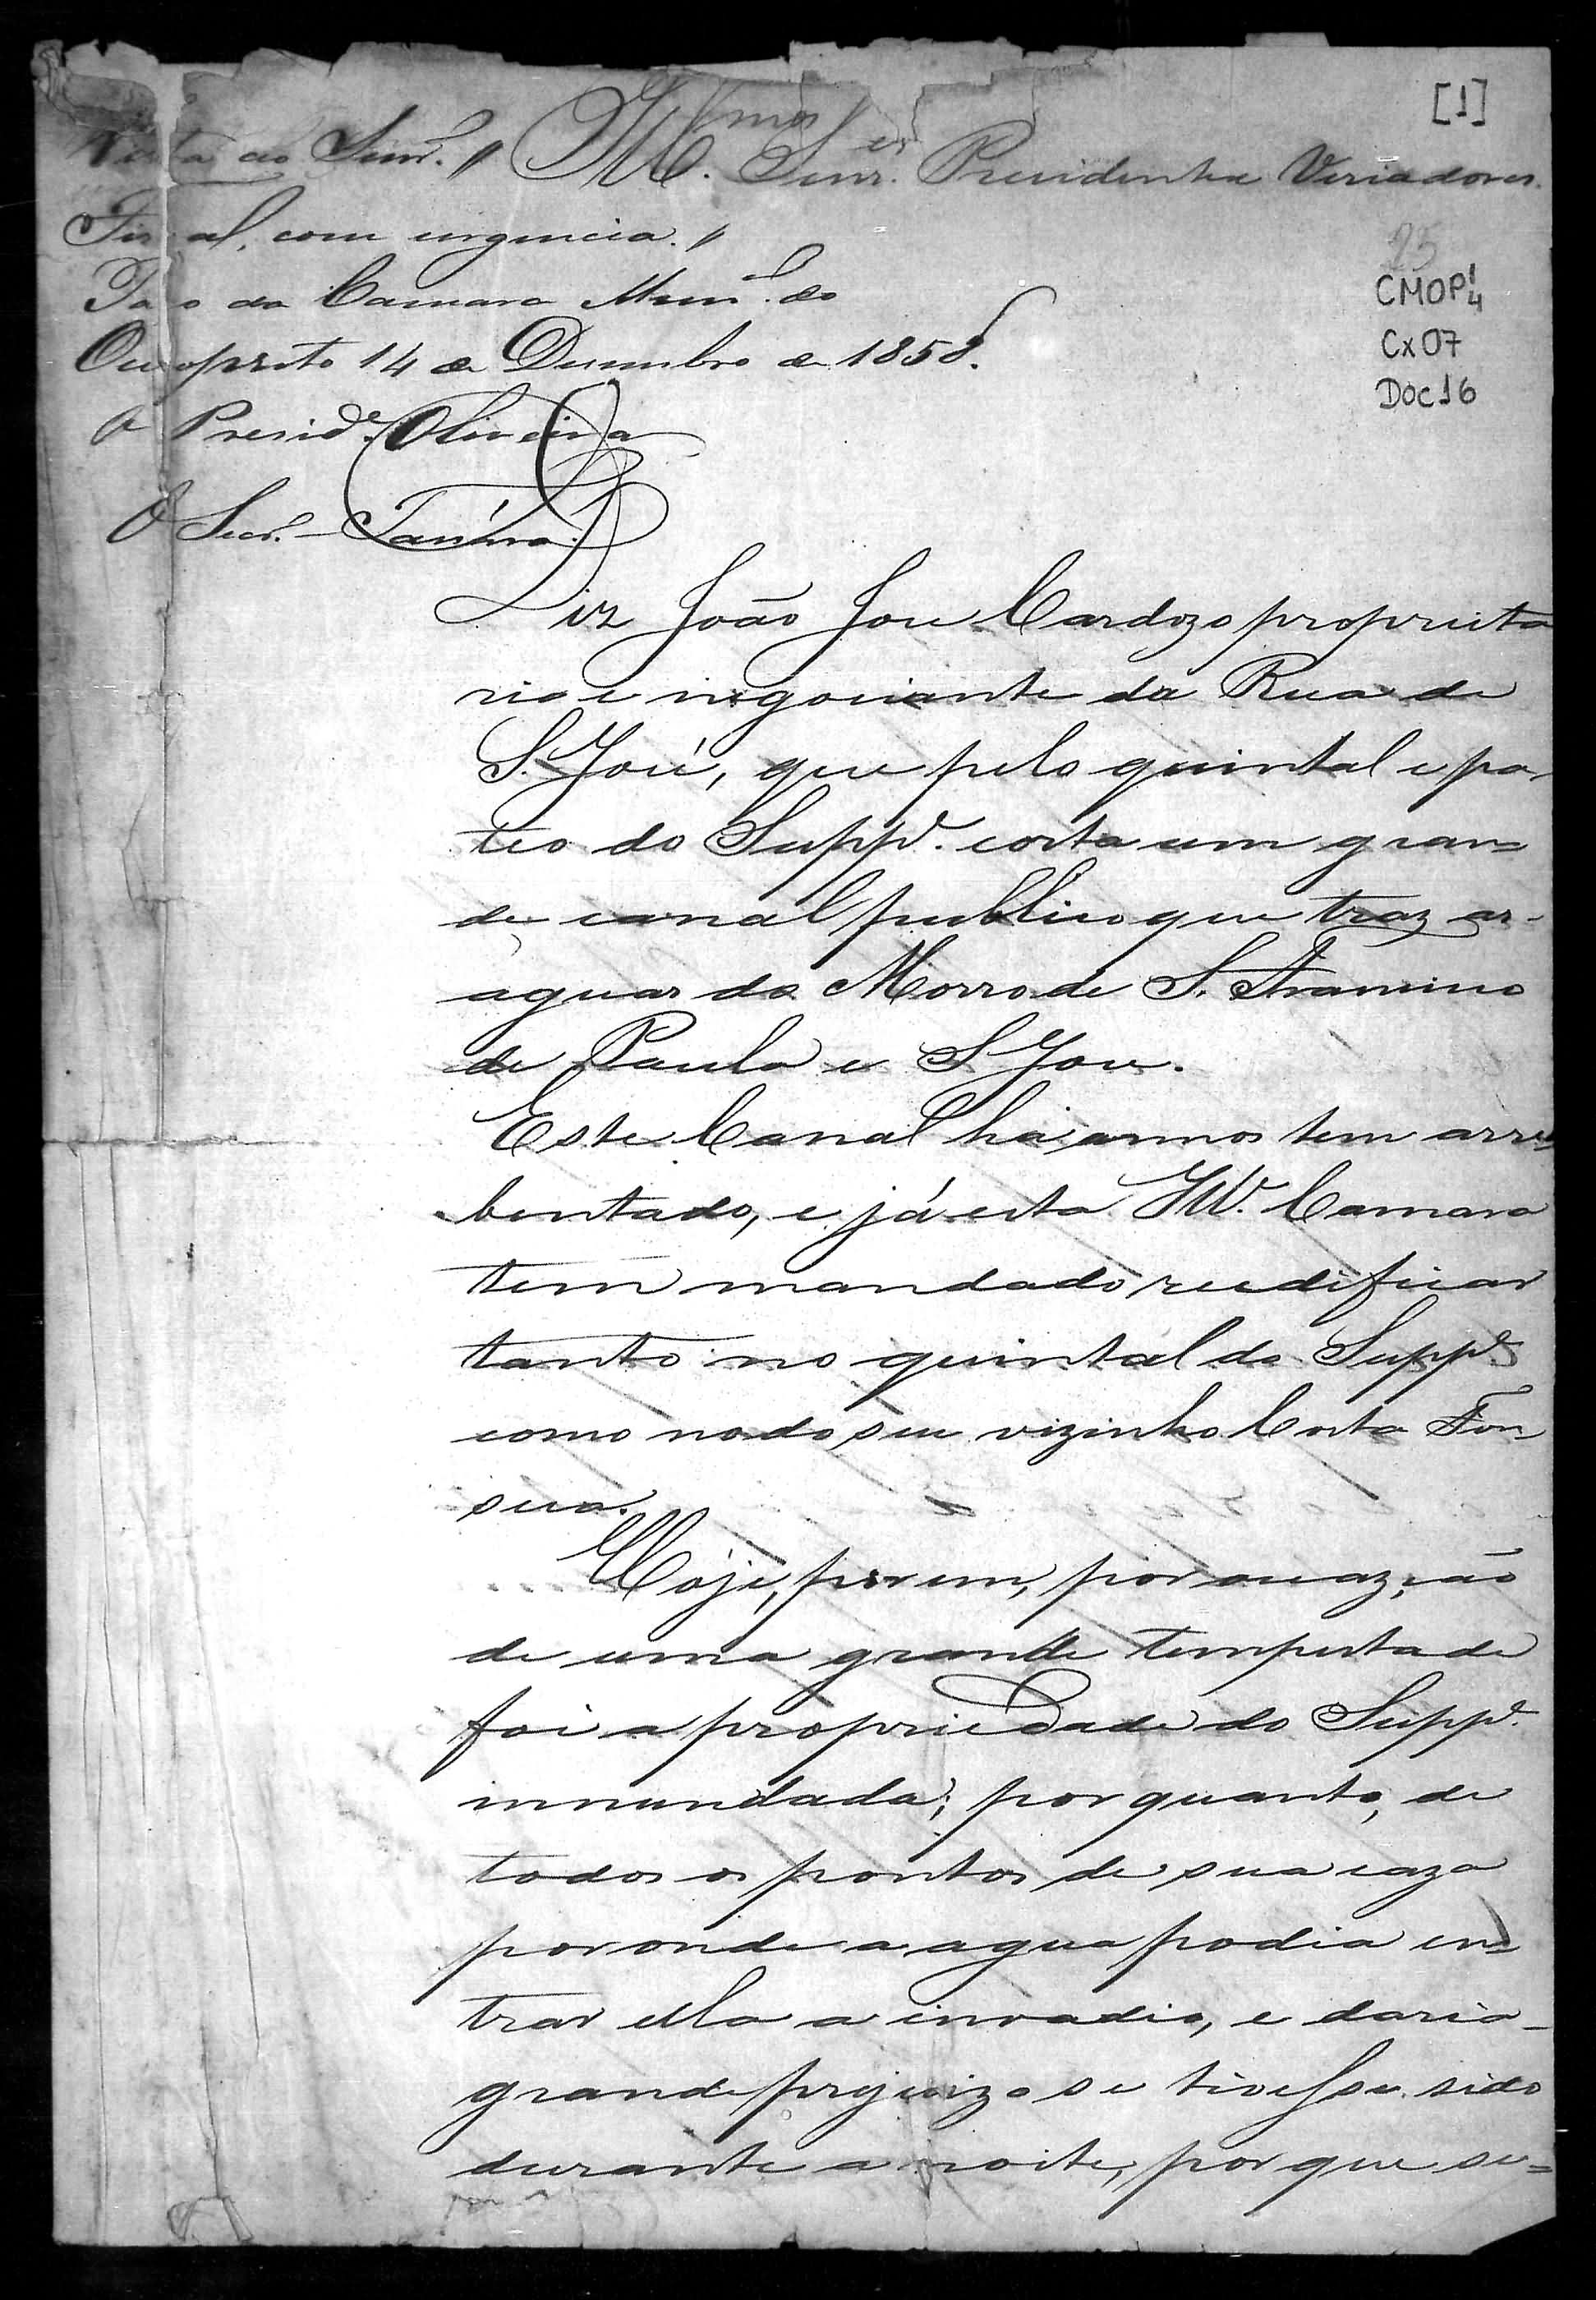 [1]
Illmos Senres. Presidente Veriadores.
Vista ao Senr. //
Fiscal, com urgencia. //
Paço da Camara Munal. do
Ouropreto 14 de Dezembro de 1858.
O Preside. Oliveira
O Secr.
25
CMOP 1/4
Cx 07
Doc 16
Diz João Jose Cardozo proprieta
rio e negociante da Rua de
S. José, que pelo quintal e pa
teo do Suppe. corta um gran=
de canal publico que traz as
aguas do Morro de S. Francisco
de Paula e S Jose.
Este Canal há annos tem arre
bentado, e já esta Illa. Camara
tem mandado reedificar
tanto no quintal do Suppe
como no do seu vizinho Costa Fon
seca.
Hoje, porem, por occazião
de uma grande tempestade
foi a propriedade do Suppe.
innundada; por quanto, de
todos os pontos de sua caza
por onde a agua podia en=
trar ella a invadio, e daria
grande prejuizo se tivesse sido
durante a noite, por que se=